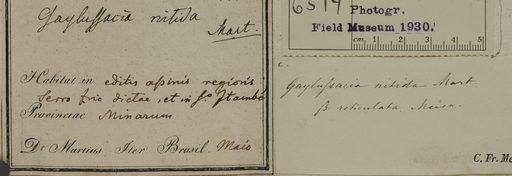 Gaylussacia nitida
Mart.
Habitat in editis apinis regionis
Serro frio dictae, et in Sa. Itambé
Provinciae Minarum
Dr Martius Iter Brasil. Maio
6519
Photogr.
Field Museum 1930.
cm 1 2 3 4 5
c.
Gaylussacia nitida Mart
β reticulata, Meisn.
C. Fr. Me